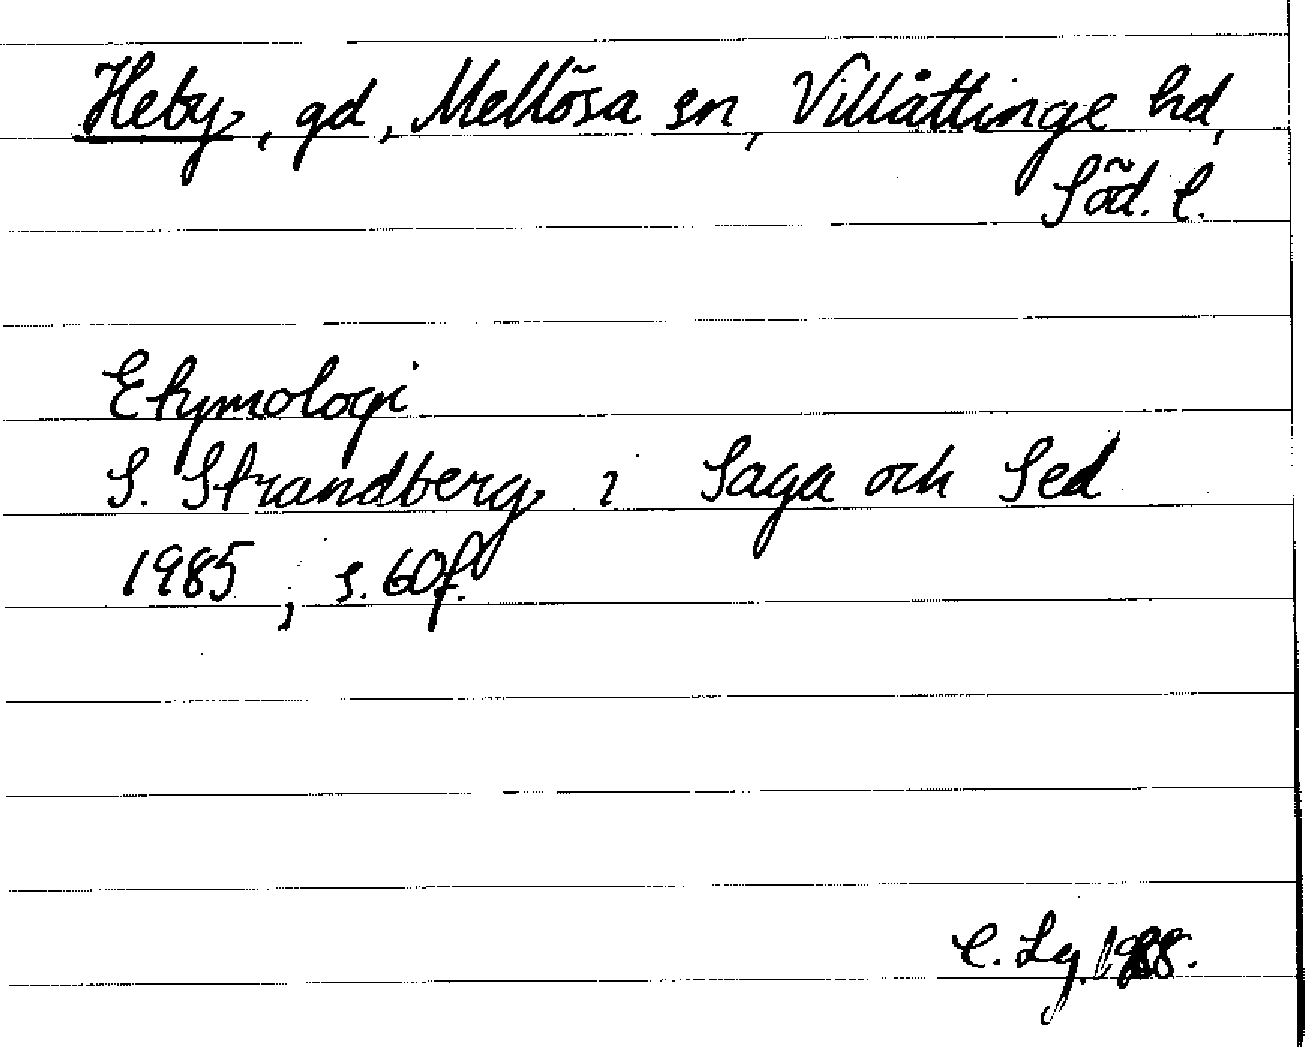 Heby, gd, Mellösa sn, Villåttinge hd,
Söd. l.
Etymologi
S. Strandberg i Saga och Sed
1985, s. 60f.
C. Lg. 1988.